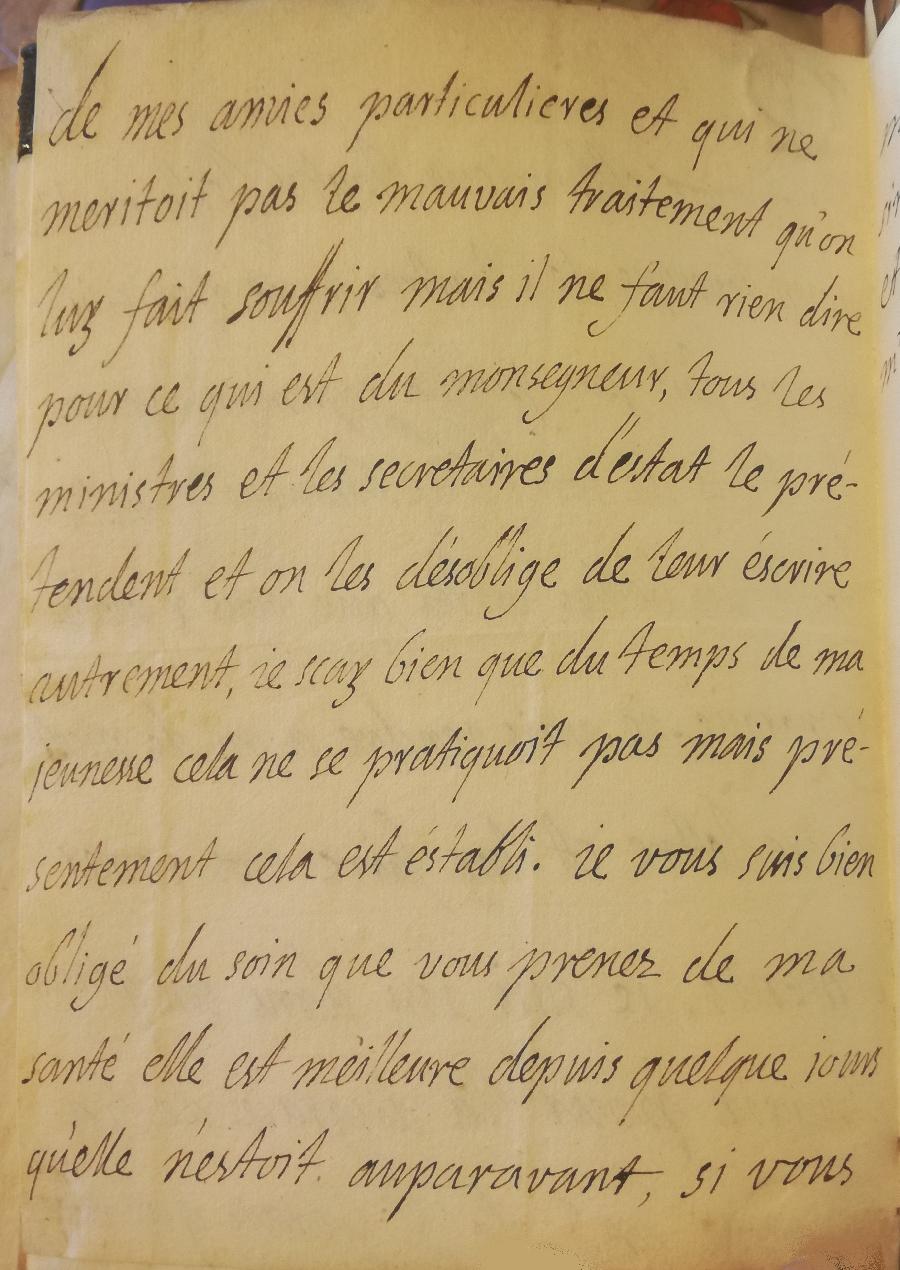 de mes amies particulieres et qui ne
meritoit pas le mauvais traitement qu'on
luy fait souffrir mais il ne faut rien dire
pour ce qui est du monsegneur, tous les
ministres et les secretaires d'estat le pré-
tendent et on les désoblige de leur éscrire
autrement, ie scay bien que du temps de ma
jeunesse cela ne se pratiquoit pas mais pré-
sentement cela est éstabli. ie vous suis bien
obligé du soin que vous prenez de ma
santé elle est méilleure depuis quelque iours
qu'elle n'estoit auparavant, si vous